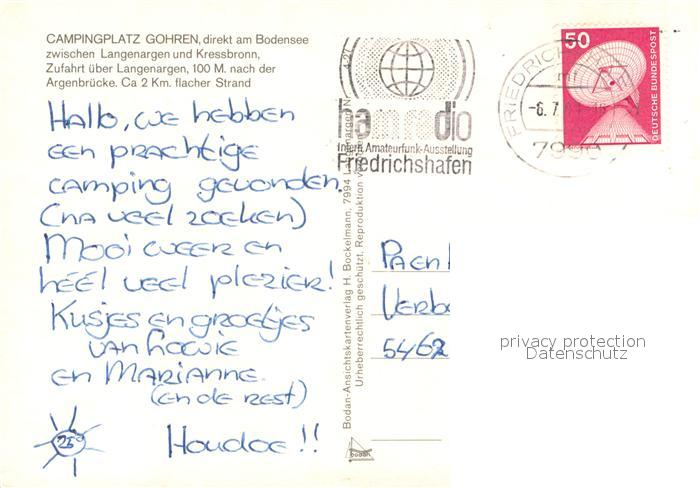 CAMPINGPLATZ GOHREN, direkt am Bodensee
zwischen Langenargen und Kressbronn,
Zufahrt über Langenargen, 100 M. nach der
Argenbrücke. Ca 2 Km. flacher Strand
Hallo, we hebben
een prachtige
camping gevonden.
(na veel zoeken)
Mooi weer en
héél veel plezier!
Kusjes en groetjes
van
en Marianne.
(en de rest)
25°
Houdoe!!
Bodan-Ansichtskartenverlag H. Bockelmann, 7994 Langenargen
Urheberrechtlich geschützt. Reproduktion
bodan
ham radio
Intern. Amateurfunk-Ausstellung
Friedrichshafen
FRIEDRICH
-6.7
7990
50
DEUTSCHE BUNDESPOST
Verbo
5462
privacy protection
Datenschutz